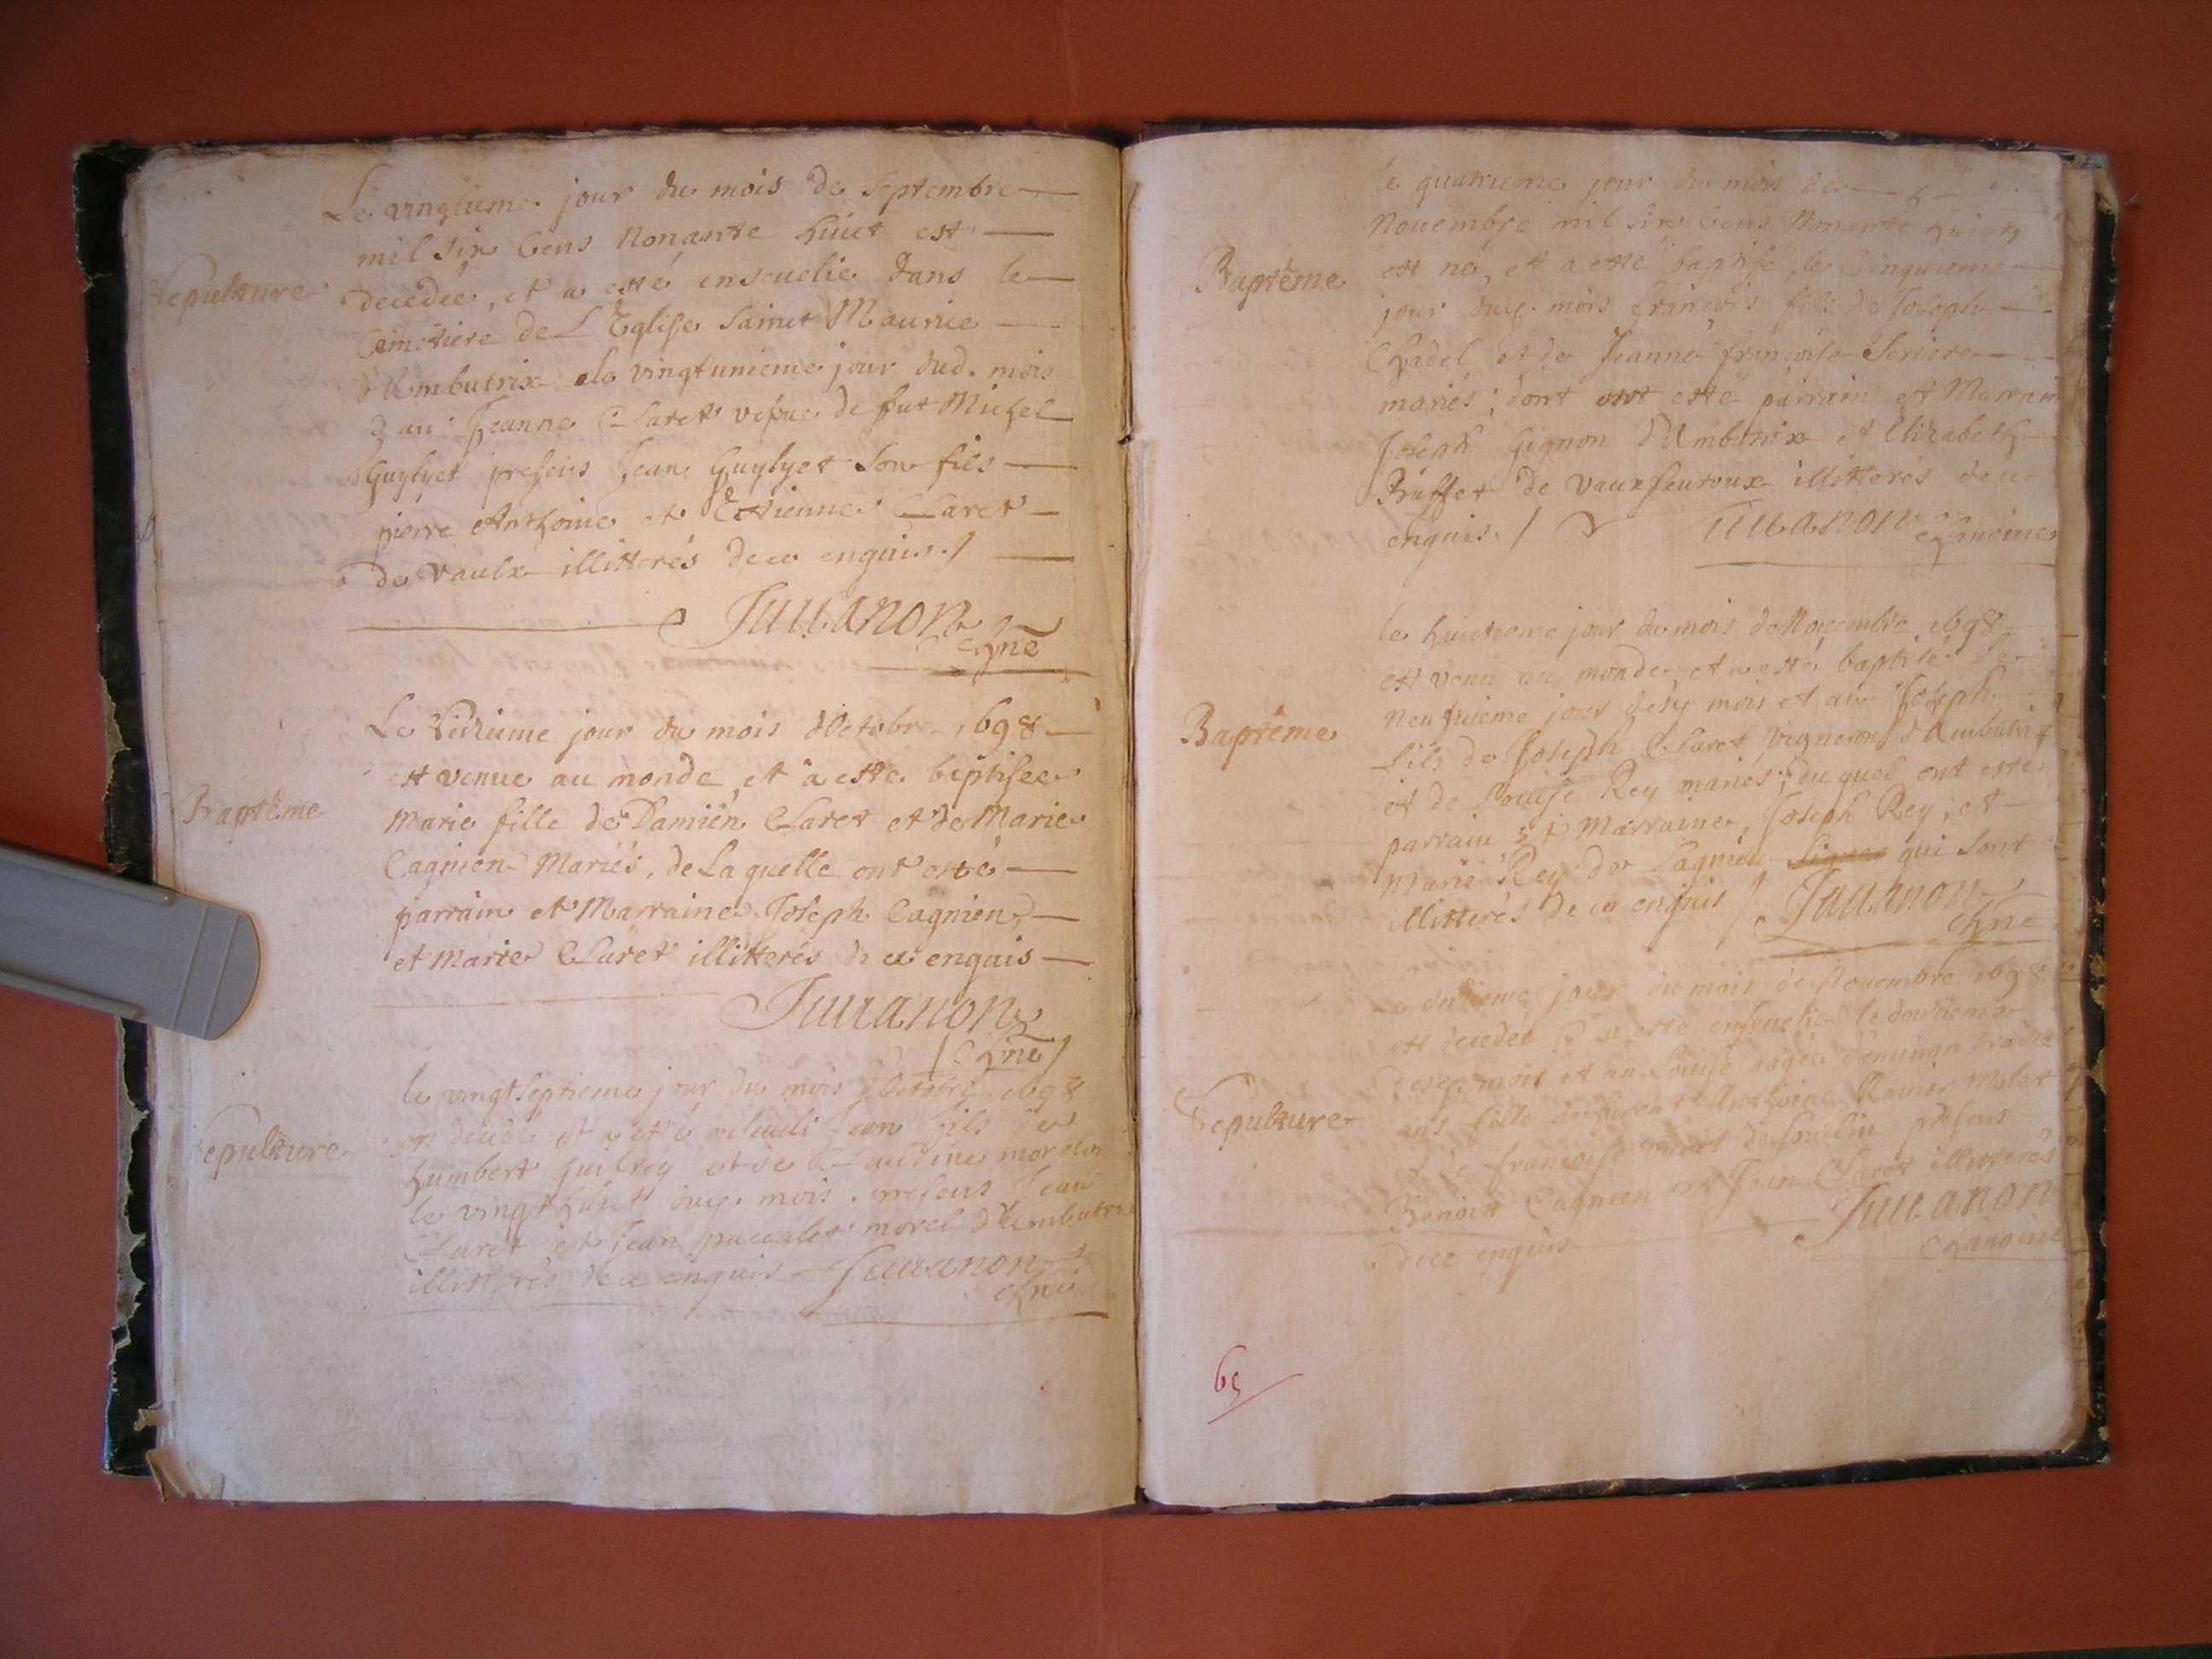 Le vingtieme jour du mois de Septembre
mil six cens Nonante huict est
Sepulture
decedée, et a esté enseuelie dans le
Cimetiere de L'Eglise Sainct Maurice
d'Ambutrix le vingtunieme jour dud. mois
& an Jeanne Claret vefue de fut Michel
Guylyet presens Jean Guylyet Son fils
pierre Anthoine et Estienne Claret
de Vaulx illitterés de ce enquis./
Juuanon
chne
Le jour du mois d'Octobre 1698
est venue au monde, et a esté baptisee
Baptême
Marie fille de Damien Claret et de Marie
Cagnien Mariés, de Laquelle ont esté
parrain et Marraine Joseph Cagnien,
et Marie Claret illitterés de ce enquis
Juuanon
/ chne /
le vingtseptieme jour du mois d'Octobre 1698
est decedé et a esté enseueli Jean fils de
Sepulture
humbert et de Claudine morel
le vingt huict mois. presens Jean
Claret et Jean morel d'Ambutrix
illitterés de ce enquis Juuanon
chne
le quatrieme jour du mois de
Nouembre mil six Cens Nonante huict
Baptême
est né, et a esté baptisé le Cinquieme
jour mois françois fils de Joseph
Chadel et de Jeanne françoise Serriere
mariés; dont ont esté parrain et Marraine
Joseph Gignon d'Ambutrix et Elizabeth
Buffet de Vauxfeuroux illitterés de ce
enquis. / Juuanon chanoine
le huictieme jour du mois de Nouembre 1698
est venu au monde, et a esté baptisé le
Baptême
neufuieme jour mois et an Joseph
fils de Joseph Claret Vigneron d'Ambutrix
et de Louise Rey mariés; du quel ont esté
parrain et Marraine, Joseph Rey, et
Marie Rey de Lagnieu qui sont
illitterés de ce enquis / Juuanon
chne
Le onzieme jour du mois de Nouembre 1698
est decedée & a esté enseuelie le douzieme
mois et an Louise aagée d'enuiron treize
Sepulture
ans fille Anthoine
et de françoise presens
Benoist Cagnien et Jean Claret illitterés
de ce enquis Juuanon
chanoine
65